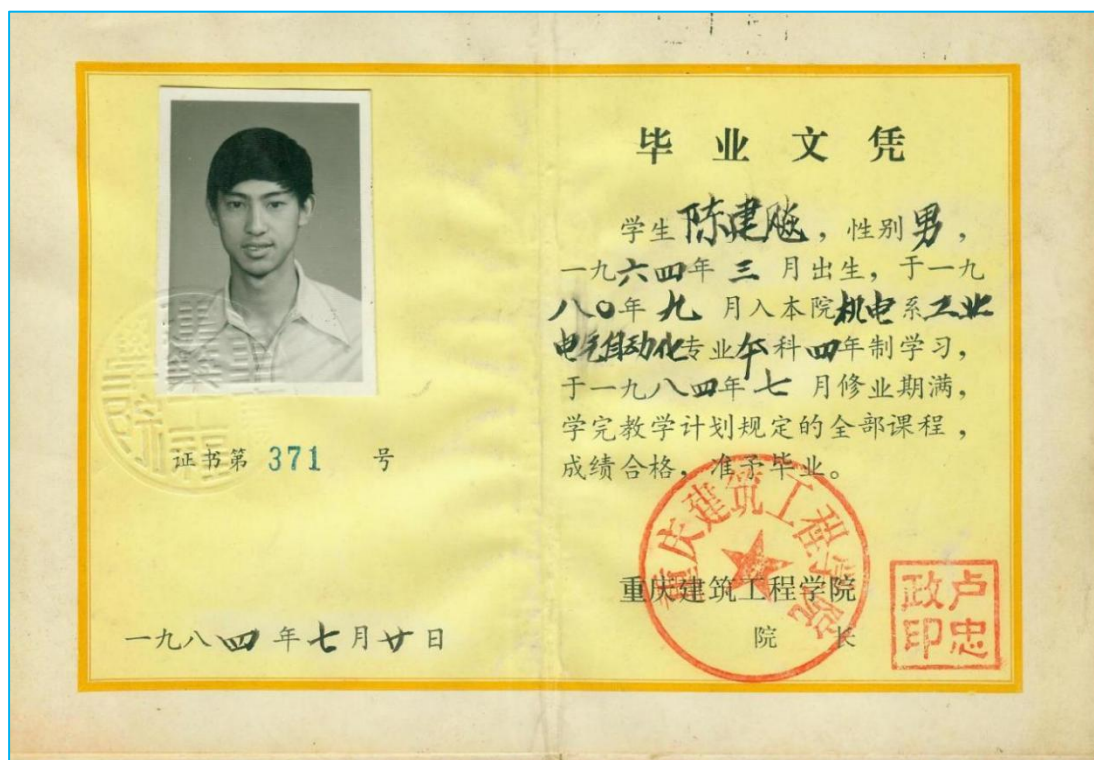 证书第 371 号
一九八四年七月廿日
毕业文凭
学生陈建，性别男，
一九六四年三月出生，于一九
八〇年九月入本院机电系工业
电气自动化专业本科四年制学习，
于一九八四年七月修业期满，
学完教学计划规定的全部课程，
成绩合格，准予毕业。
重庆建筑工程学院
院长
重庆建筑工程学院
卢忠
政印